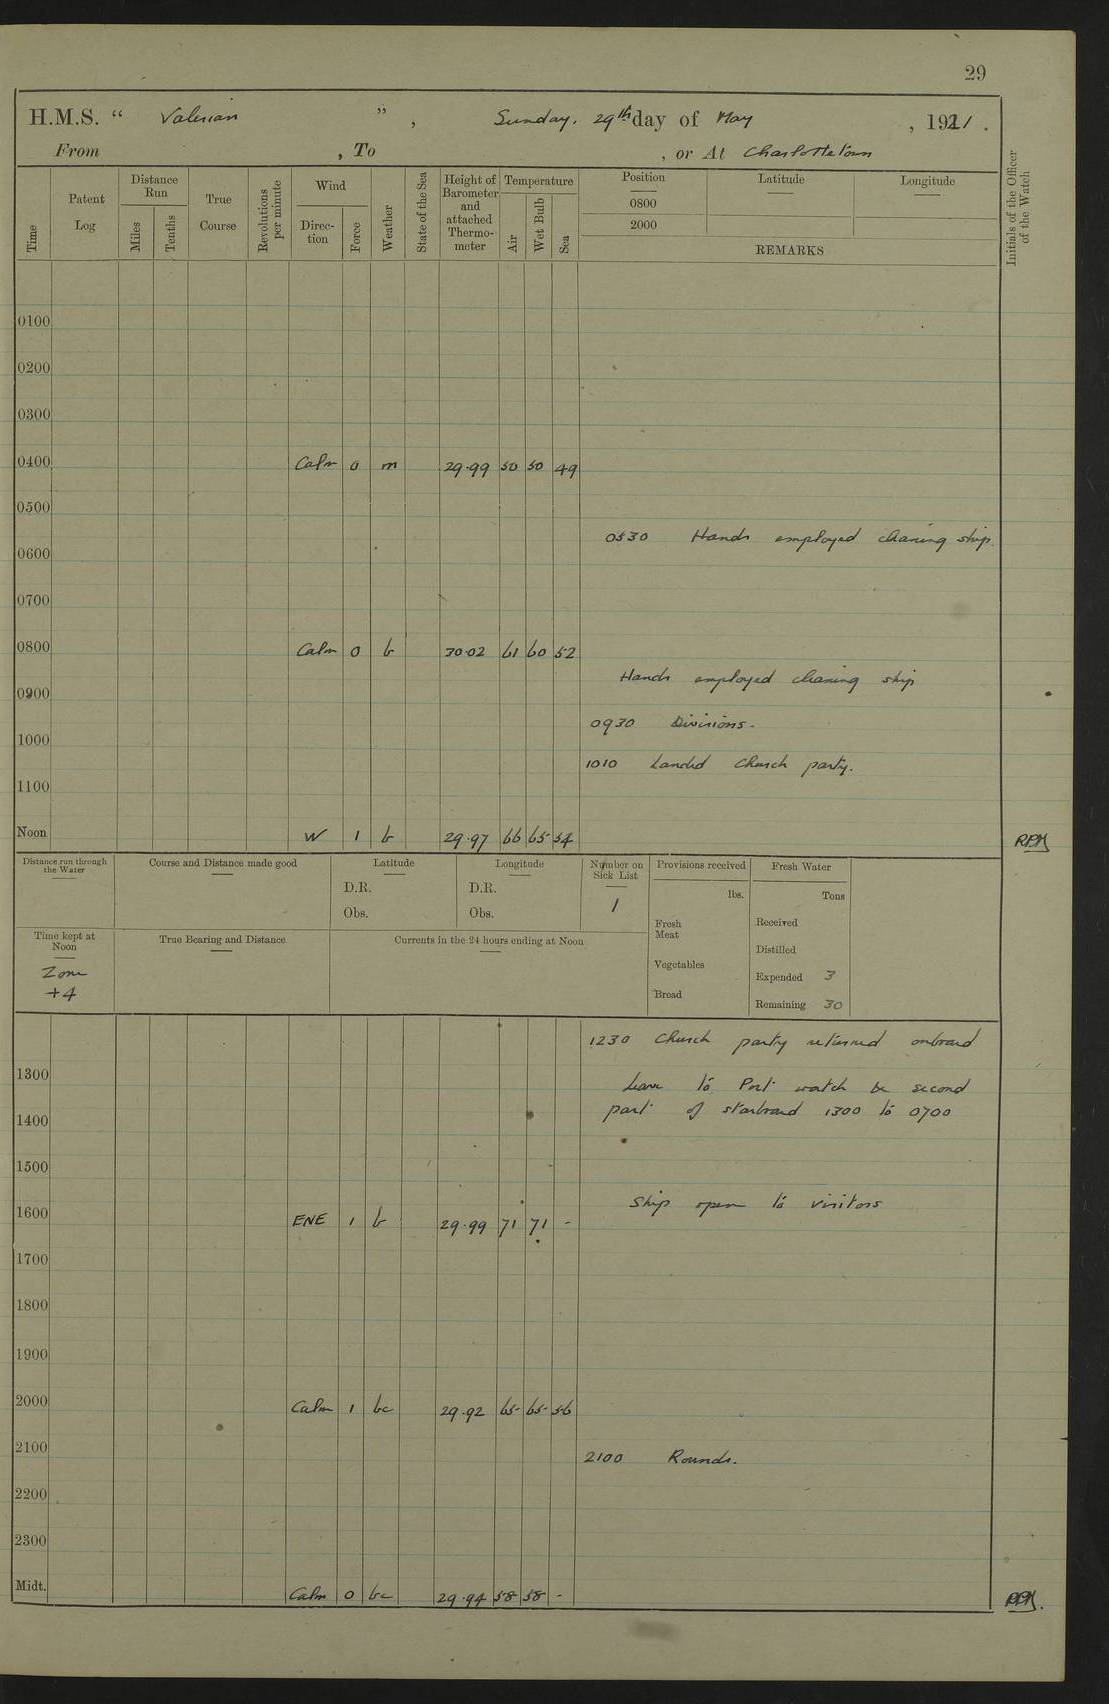 29
H.M.S. “ Valerian ” , Sunday. 29th day of May , 1921 .
From , To , or At Charlottetown
Time
Patent Log
Distance Run
Miles
Tenths
True Course
Revolutions per minute
Wind
Direction
Force
Weather
State of the Sea
Height of Barometer and attached Thermometer
Temperature
Air
Wet Bulb
Sea
Position
0800
2000
Latitude
Longitude
REMARKS
Initials of the Officer of the Watch
0100
0200
0300
0400 Calm 0 m 29.99 50 50 49
0500
0530 Hands employed cleaning ship.
0600
0700
0800 Calm 0 b 30.02 61 60 52
Hands employed cleaning ship
0900
0930 Divisions.
1000
1010 Landed Church party.
1100
Noon W 1 b 29.97 66 65 54 RPM
Distance run through the Water
Course and Distance made good
Latitude
D.R.
Obs.
Longitude
D.R.
Obs.
Number on Sick List
1
Provisions received
lbs.
Fresh Meat
Vegetables
Bread
Fresh Water
Tons
Received
Distilled
Expended 3
Remaining 30
Time kept at Noon
Zone
+4
True Bearing and Distance
Currents in the 24 hours ending at Noon
1230 Church party returned onboard
1300
Leave to Port watch & second
part of starboard 1300 to 0700
1400
1500
Ship open to visitors
1600 ENE 1 b 29.99 71 71 -
1700
1800
1900
2000 Calm 1 bc 29.92 65 65 56
2100
2100 Rounds.
2200
2300
Midt. Calm 0 bc 29.94 58 58 - RPM.